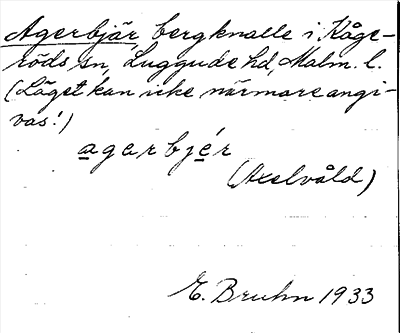 Agerbjär, bergknalle i Kåge-
röds sn, Luggude hd, Malm. l.
(Läget kan icke närmare angi-
vas!)
agerbjér
(Axelvåld)
E. Bruhn 1933